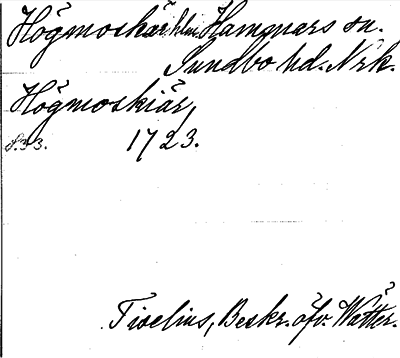 Högmoskär hlm Hammars sn.
Sundbo hd. Nrk.
Högmoskiär,
s. 33. 1723.
Tiselius, Beskr. öfv. Wätter.